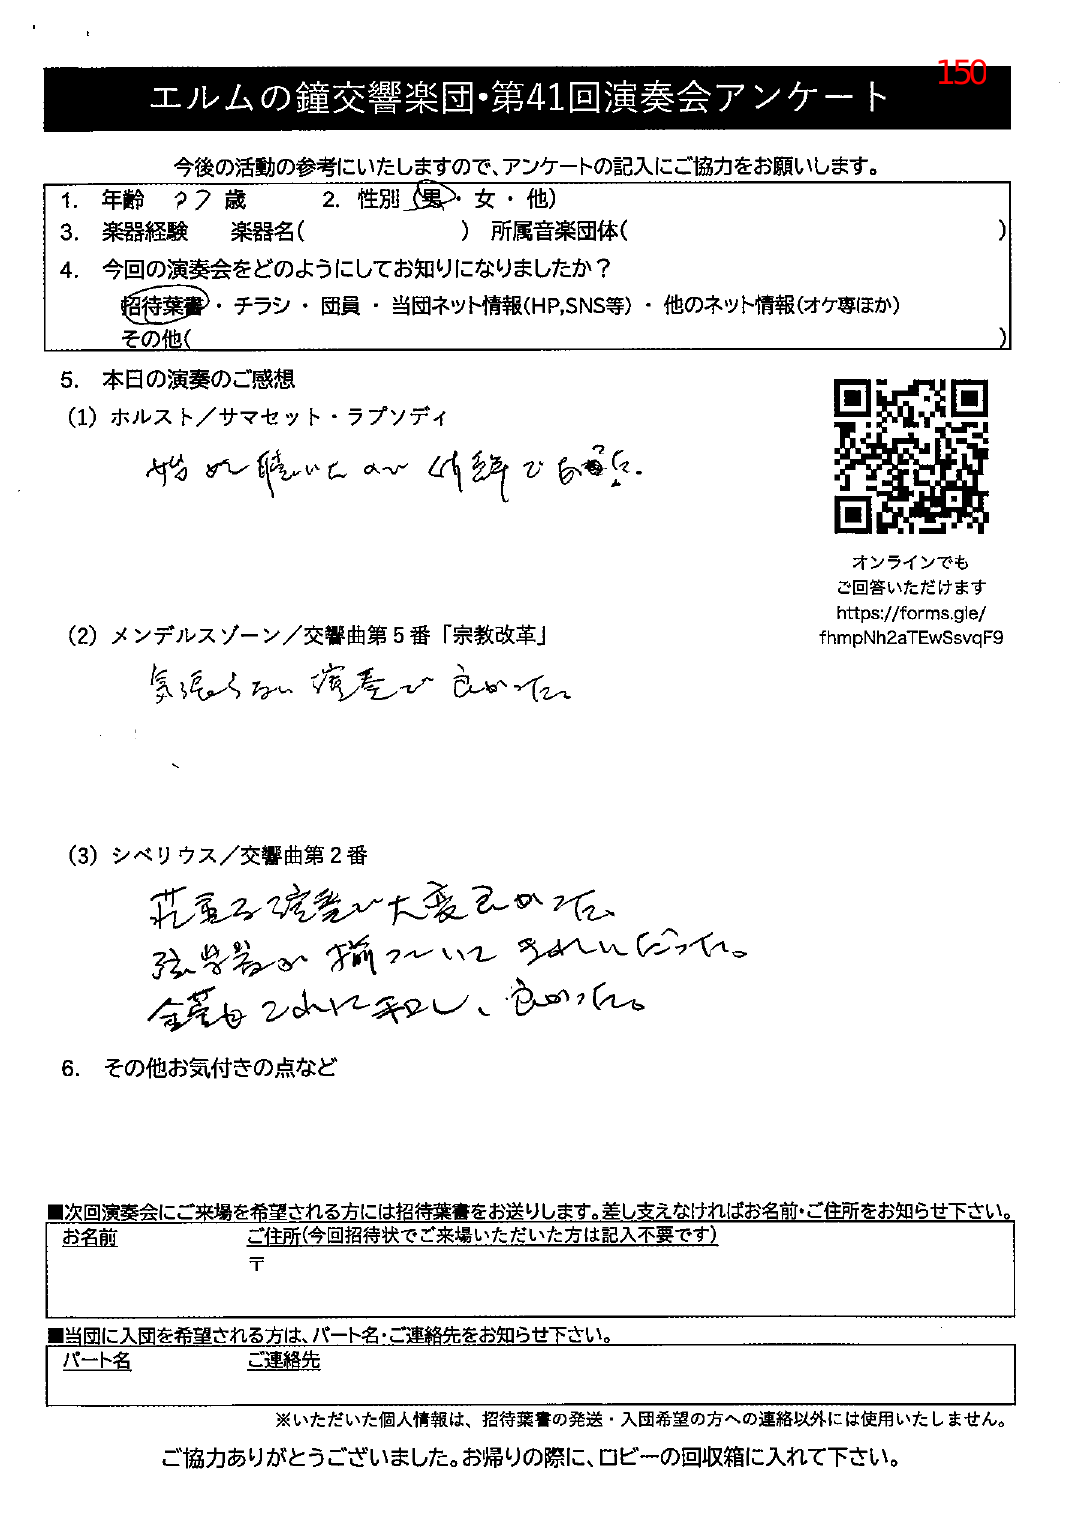 150
エルムの鐘交響楽団・第41回演奏会アンケート
今後の活動の参考にいたしますので、アンケートの記入にご協力をお願いします。
1. 年齢 77 歳 2. 性別 (男・女・他)
3. 楽器経験 楽器名( ) 所属音楽団体( )
4. 今回の演奏会をどのようにしてお知りになりましたか？
招待葉書・チラシ・団員・当団ネット情報(HP,SNS等)・他のネット情報(オケ専ほか)
その他( )
5. 本日の演奏のご感想
(1) ホルスト／サマセット・ラプソディ
始めて聴いたが 新鮮で
オンラインでも
ご回答いただけます
https://forms.gle/
fhmpNh2aTEwSsvqF9
(2) メンデルスゾーン／交響曲第５番「宗教改革」
気張らない演奏で良かった。
(3) シベリウス／交響曲第２番
荘重な演奏で大変良かった。
弦楽器が揃っていてきれいだった。
金管もそれに和し、良かった。
6. その他お気付きの点など
■次回演奏会にご来場を希望される方には招待葉書をお送りします。差し支えなければお名前・ご住所をお知らせ下さい。
お名前 ご住所(今回招待状でご来場いただいた方は記入不要です)
〒
■当団に入団を希望される方は、パート名・ご連絡先をお知らせ下さい。
パート名 ご連絡先
※いただいた個人情報は、招待葉書の発送・入団希望の方への連絡以外には使用いたしません。
ご協力ありがとうございました。お帰りの際に、ロビーの回収箱に入れて下さい。